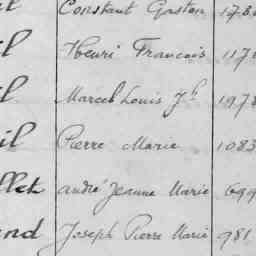 Constant Gaston 178
il Henri François 117
il Marcel Louis Jh 1978
il Pierre Marie 1083
llet andré Jeanne Marie 699
and Joseph Pierre Marie 981